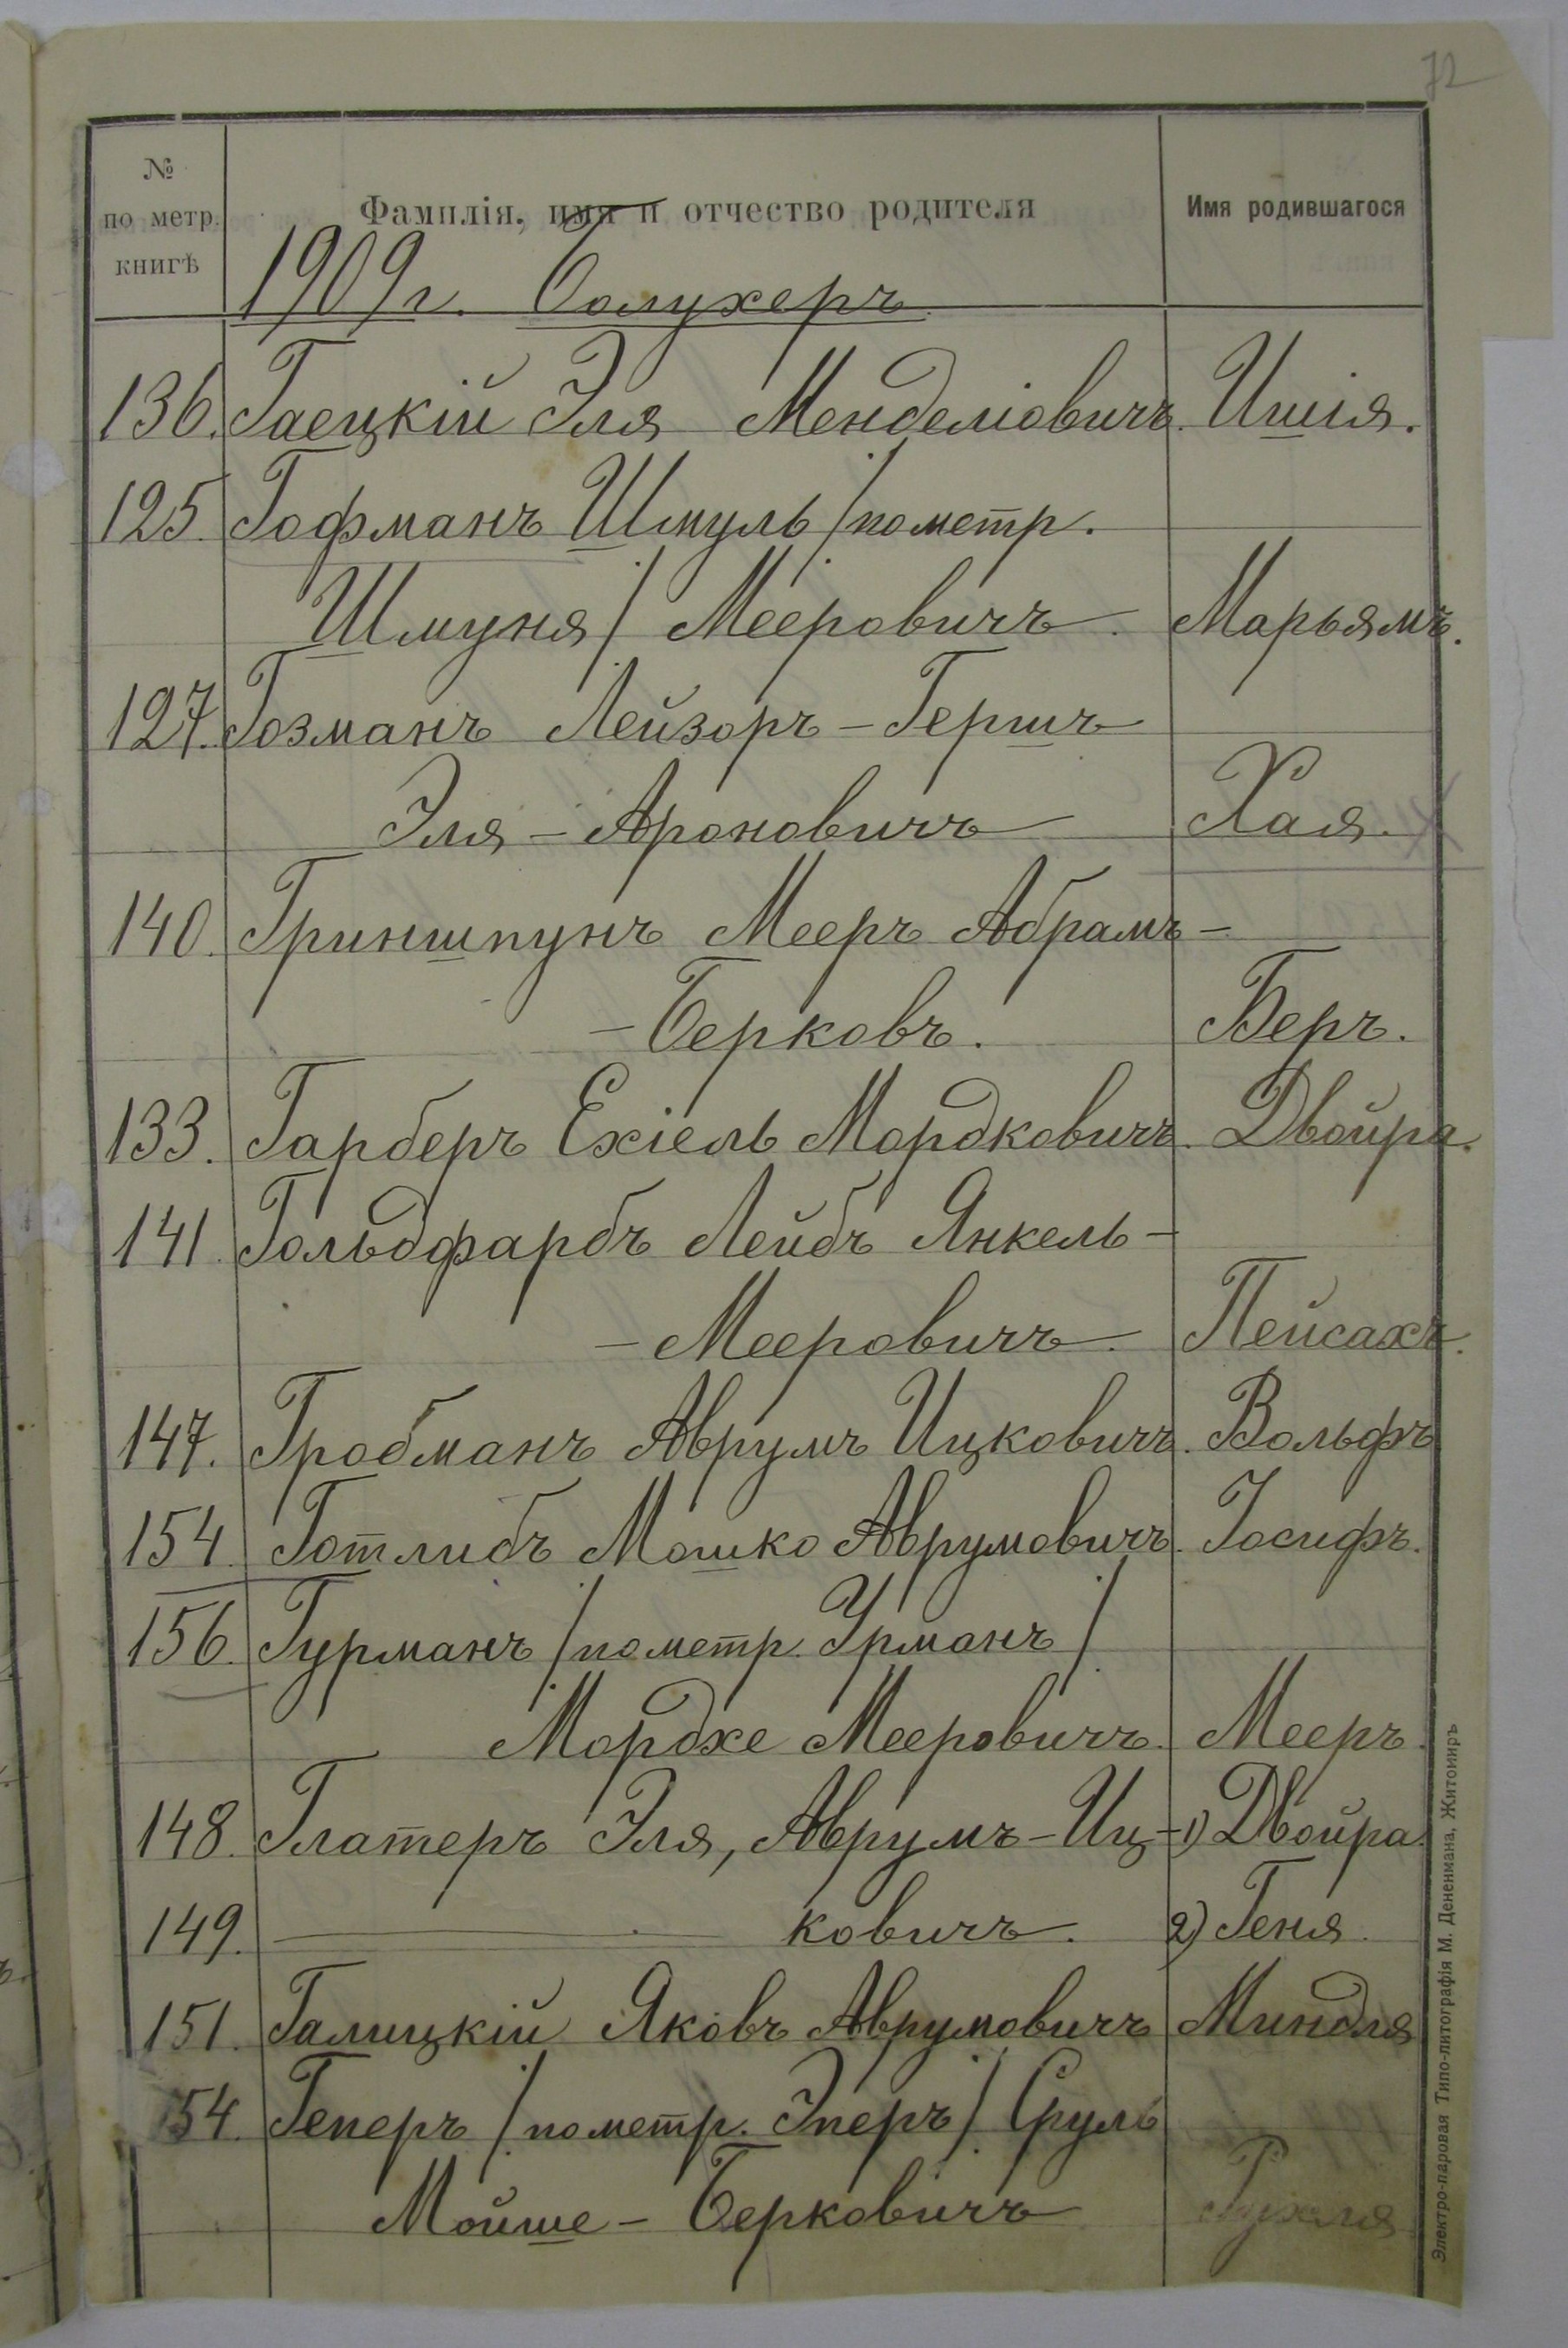 72
№ по метр. книгѣ
Фамилія, имя и отчество родителя
Имя родившагося
1909 г. Болухеръ
136. Гаецкій Эля Менделіовичъ. Ишія.
125. Гофманъ Шмуль /по метр.
Шмуня/ Мееровичъ. Марьямъ.
127. Гозманъ Лейзоръ-Гершъ
Эля-Ароновичъ Хая.
140. Гриншпунъ Мееръ Абрамъ-
-Берковъ. Беръ.
133. Гарберъ Ехіель Мордковичъ. Двойра.
141. Гольдфарбъ Лейбъ Янкель-
-Мееровичъ. Пейсахъ.
147. Гробманъ Аврумъ Ицковичъ. Вольфъ
154. Готлибъ Мошко Аврумовичъ. Іосифъ.
156. Гурманъ /по метр. Урманъ/
Мордхе Мееровичъ. Мееръ.
148. Глатеръ Эля, Аврумъ-Иц- 1) Двойра.
149. ковичъ. 2) Геня.
151. Галицкій Яковъ Аврумовичъ Миндля
54. Геперъ /по метр. Эперъ/ Сруль
Мойше-Берковичъ Рухля
Электро-паровая Типо-литографія М. Дененмана, Житомиръ